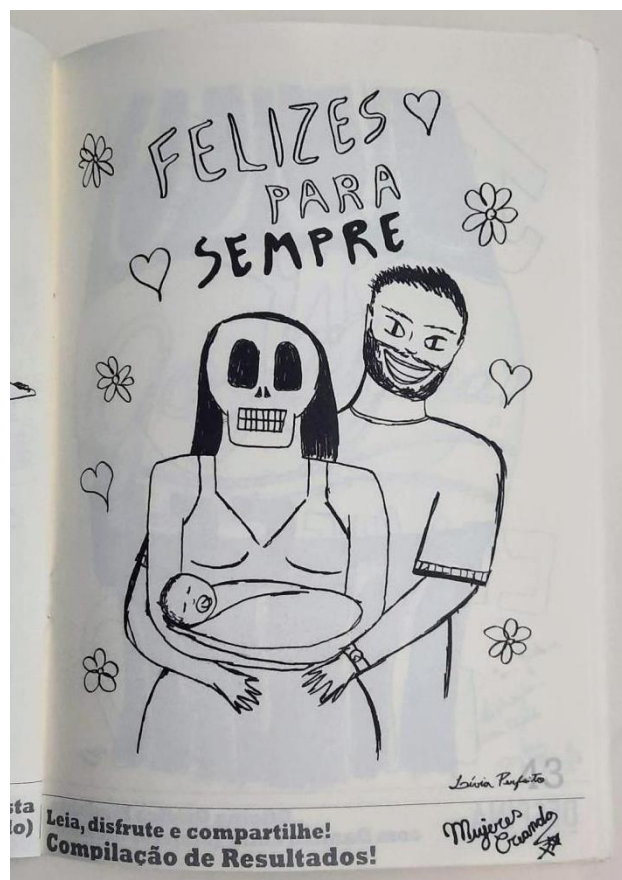 FELIZES
PARA
SEMPRE
Lívia Perfeito
43
sta
lo)
Leia, disfrute e compartilhe!
Compilação de Resultados!
Mujeres
Creando